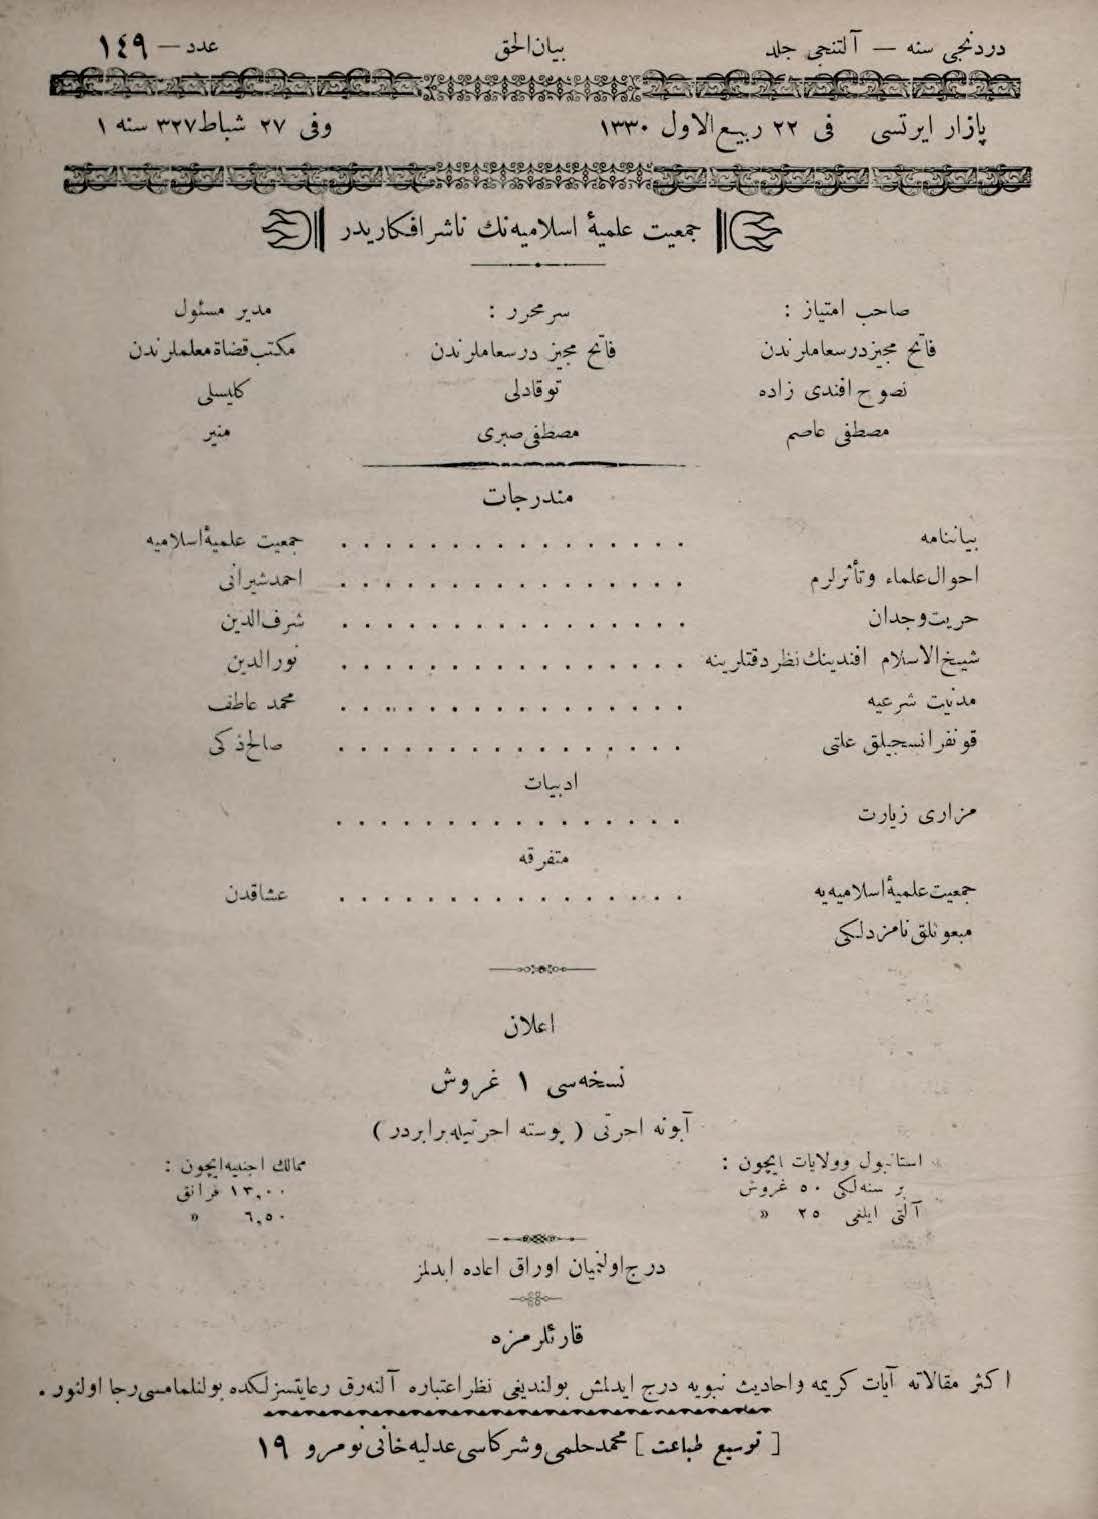 دردنجی سنه — آلتنجی جلد بیان‌الحق عدد — ١٤٩
پازار ایرتسی فی ٢٢ ربیع‌الاول ١٣٣٠ وفی ٢٧ شباط ٣٢٧ سنه ١
جمعیت علمیهٔ اسلامیه‌نك ناشر افکاریدر
صاحب امتیاز : سرمحرر : مدیر مسئول
فاتح مجیز درسعاملرندن فاتح مجیز درسعاملرندن مکتب قضاة معلملرندن
نصوح افندی زاده توقادلی کلیسلی
مصطفی عاصم مصطفی صبری منیر
مندرجات
بیاننامه . . . . . . . . . . . . . . . . جمعیت علمیهٔ اسلامیه
احوال علماء وتأثرلرم . . . . . . . . . . . . . . . . احمد شیرانی
حریت وجدان . . . . . . . . . . . . . . . . شرف‌الدین
شیخ‌الاسلام افندینك نظر دقتلرینه . . . . . . . . . . . . . . . . نورالدین
مدنیت شرعیه . . . . . . . . . . . . . . . . محمد عاطف
قونفرانسجیلق علتی . . . . . . . . . . . . . . . . صالح ذکی
ادبیات
مزاری زیارت . . . . . . . . . . . . . . . .
متفرقه
جمعیت علمیهٔ اسلامیه‌یه . . . . . . . . . . . . . . . . عشاقدن
مبعوثلق نامزدلکی
اعلان
نسخه‌سی ١ غروش
آبونه اجرتی ( پوسته اجرتیله برابردر )
استانبول وولایات ایچون : ممالك اجنبیه ایچون :
بر سنه‌لکی ٥٠ غروش ١٣,٠٠ فرانق
آلتی ایلغی ٢٥ » ٦,٥٠ »
درج اولنمیان اوراق اعاده ایدلمز
قارئلرمزه
اکثر مقالاته آیات کریمه واحادیث نبویه درج ایدلمش بولندیغی نظر اعتباره آلنه‌رق رعایتسزلکده بولنلمامسی رجا اولنور .
[ توسیع طباعت ] محمد حلمی وشرکاسی عدلیه خانی نومرو ١٩